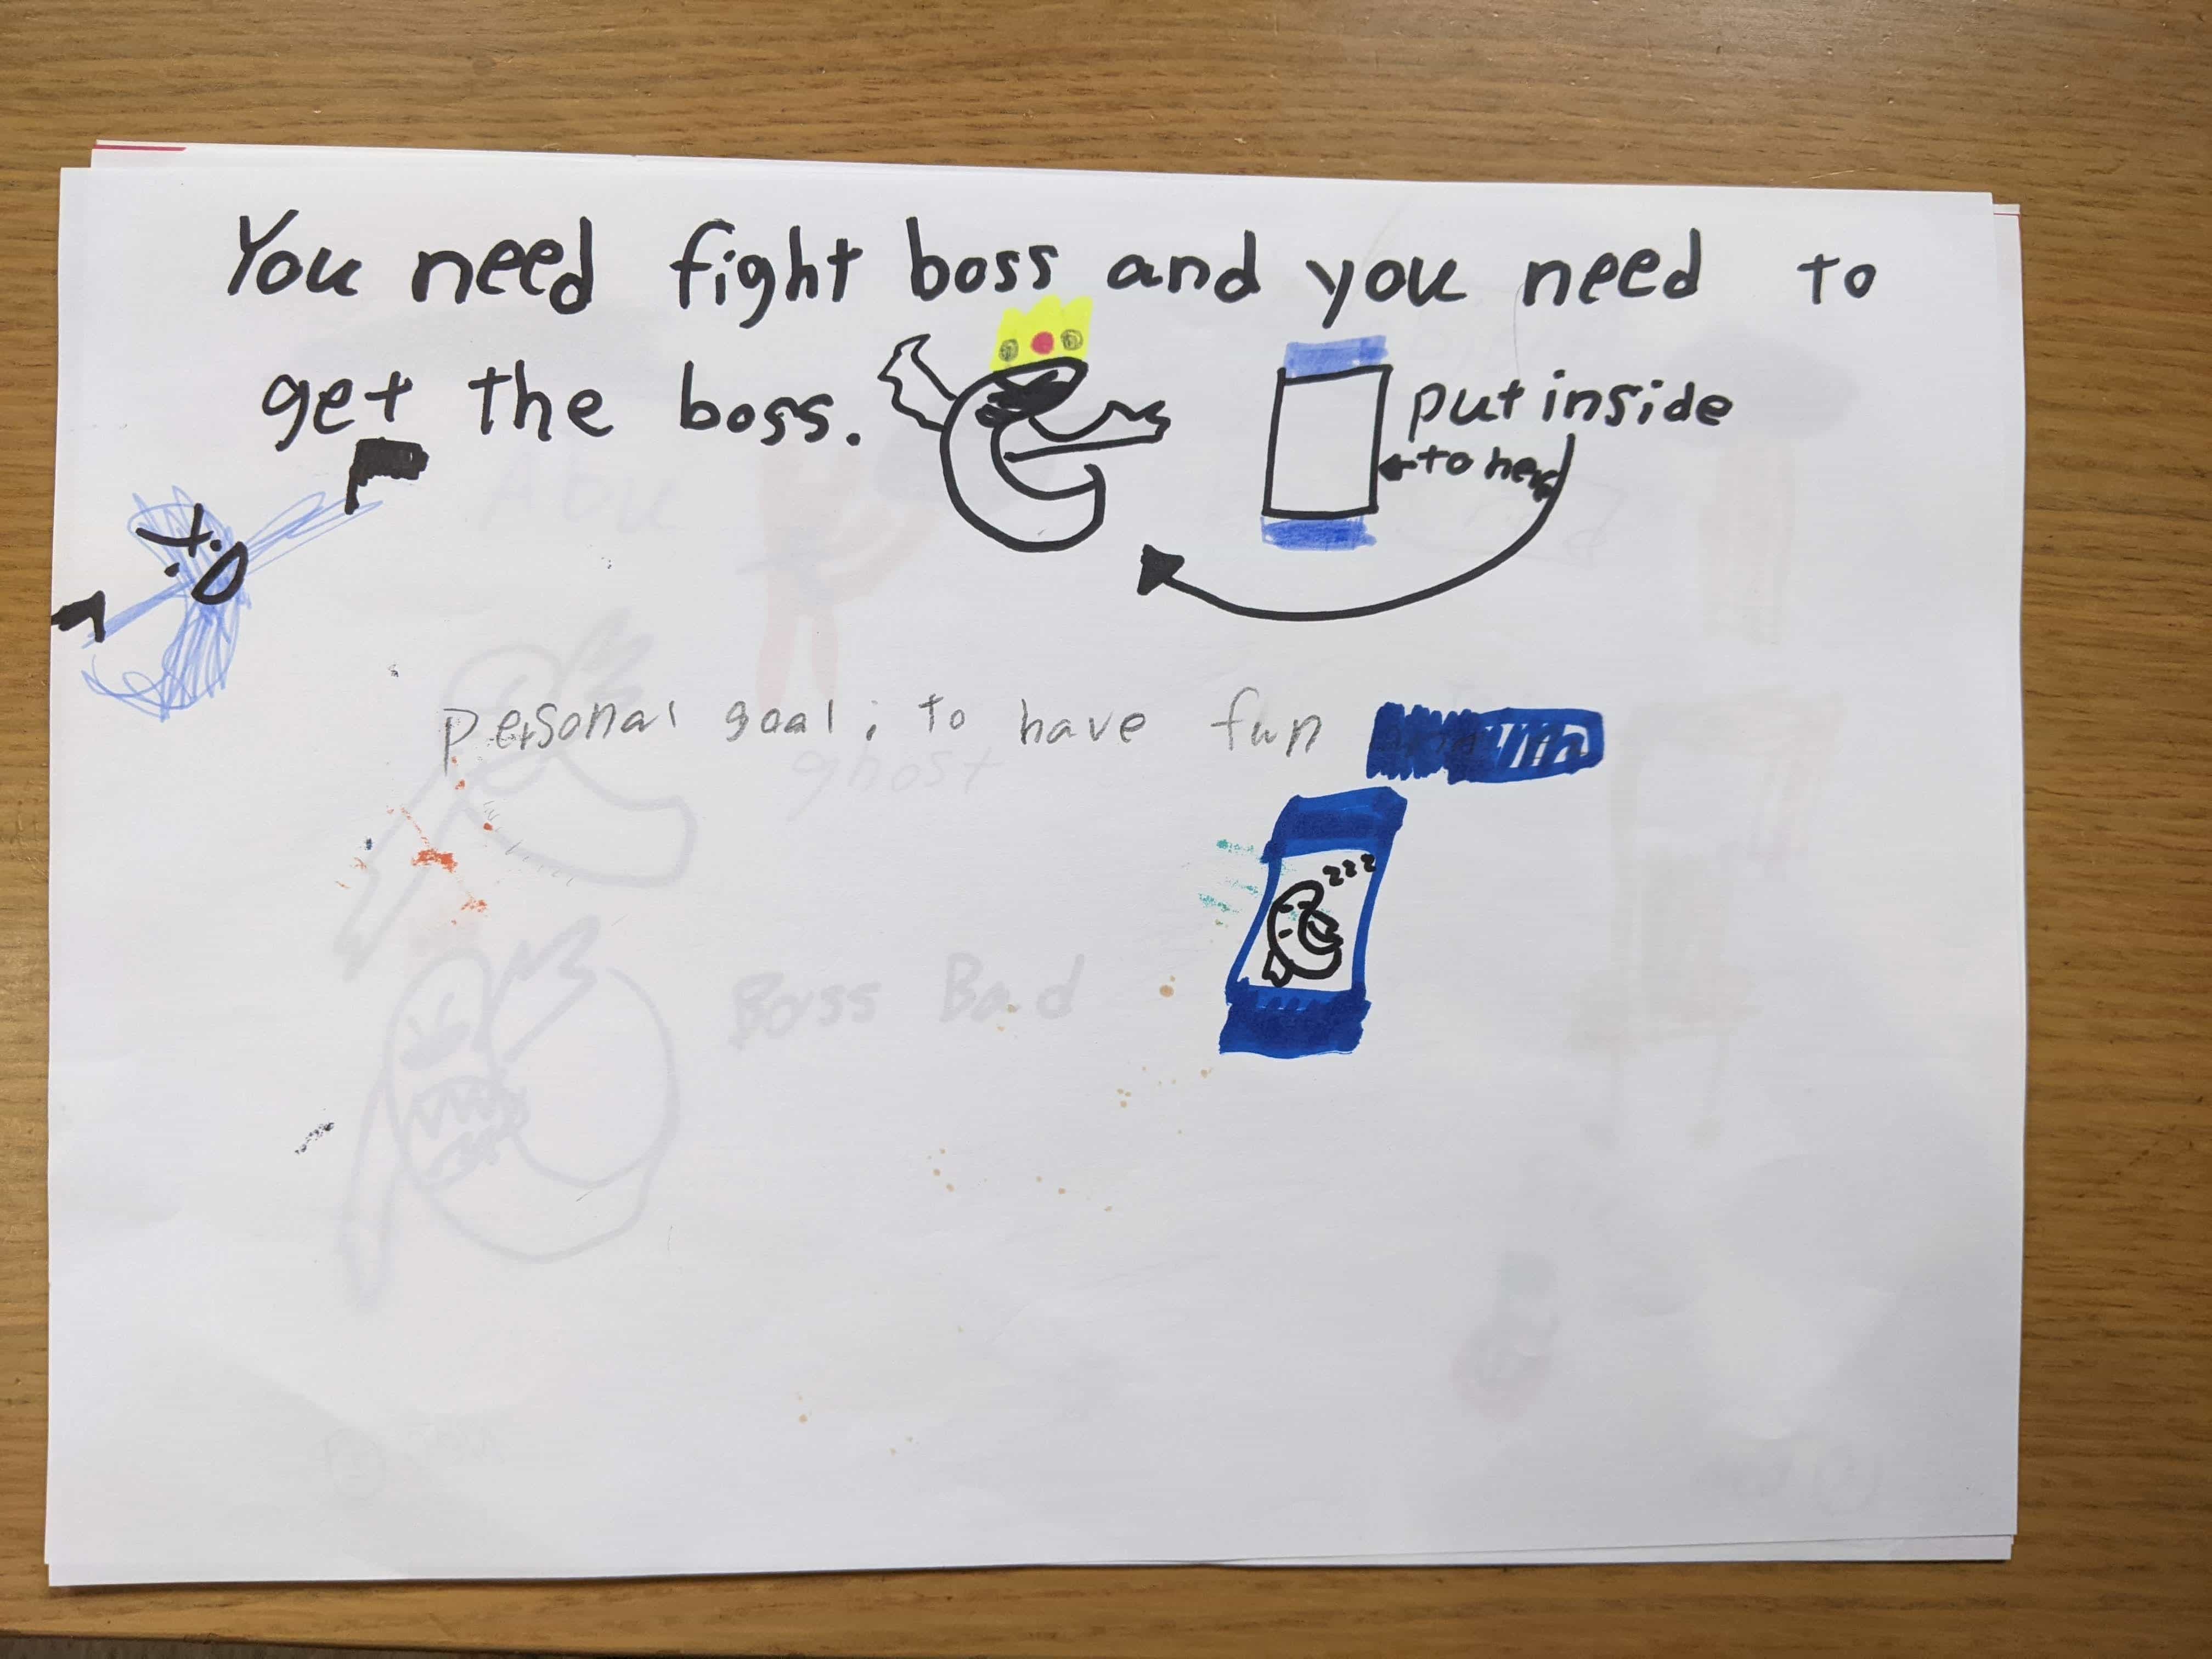 You need fight boss and you need to
get the boss.
put inside
to here
personal goal: to have fun
zzz
Abu
ghost
Boss Bad